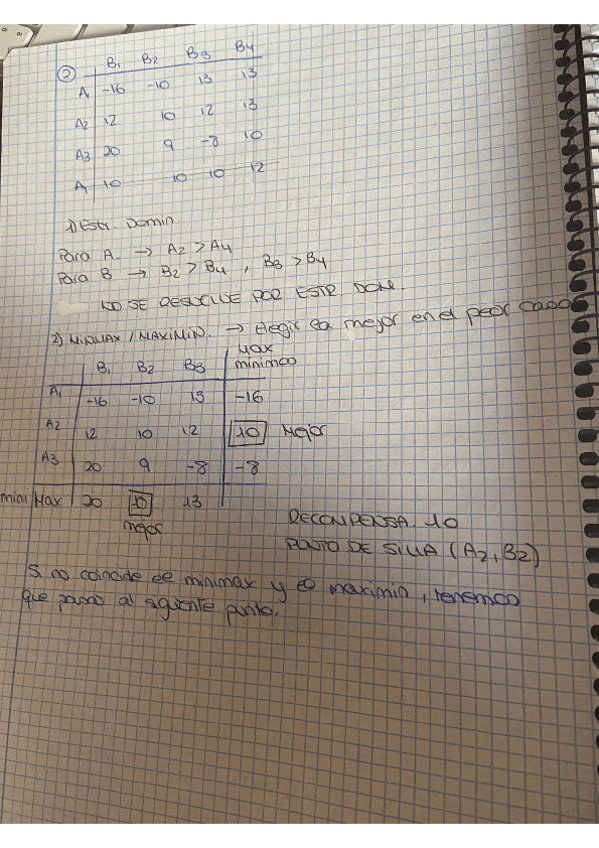 2) B1 B2 B3 B4
A1 -16 -10 13 13
A2 12 10 12 13
A3 20 9 -8 10
A4 10 10 10 12
1) Estr. Domin
Para A. → A2 > A4
Para B → B2 > B4 , B3 > B4
NO SE RESUELVE POR ESTR. DOM.
2) MINMAX / MAXIMIN. → Elegir la mejor en el peor caso
B1 B2 B3 Max minimos
A1 -16 -10 13 -16
A2 12 10 12 10 Mejor
A3 20 9 -8 -8
mini Max 20 10 13
mejor
RECOMPENSA. 10
PUNTO DE SILLA (A2, B2)
Si no coincide el minimax y el maximin, tenemos
que pasar al siguiente punto.